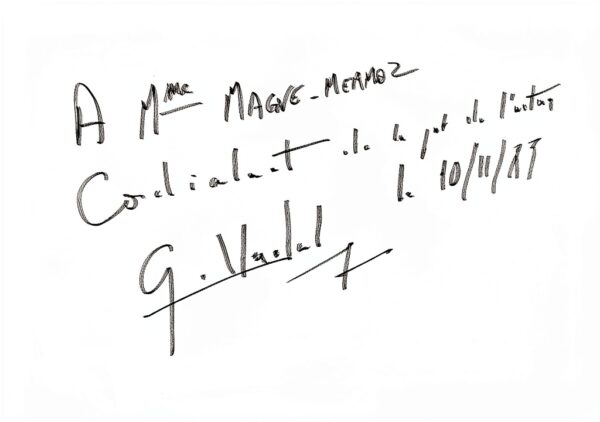 A Mme MAGNE-MERMOZ
Cordialement de la part de l'auteur
le 10/11/
G.